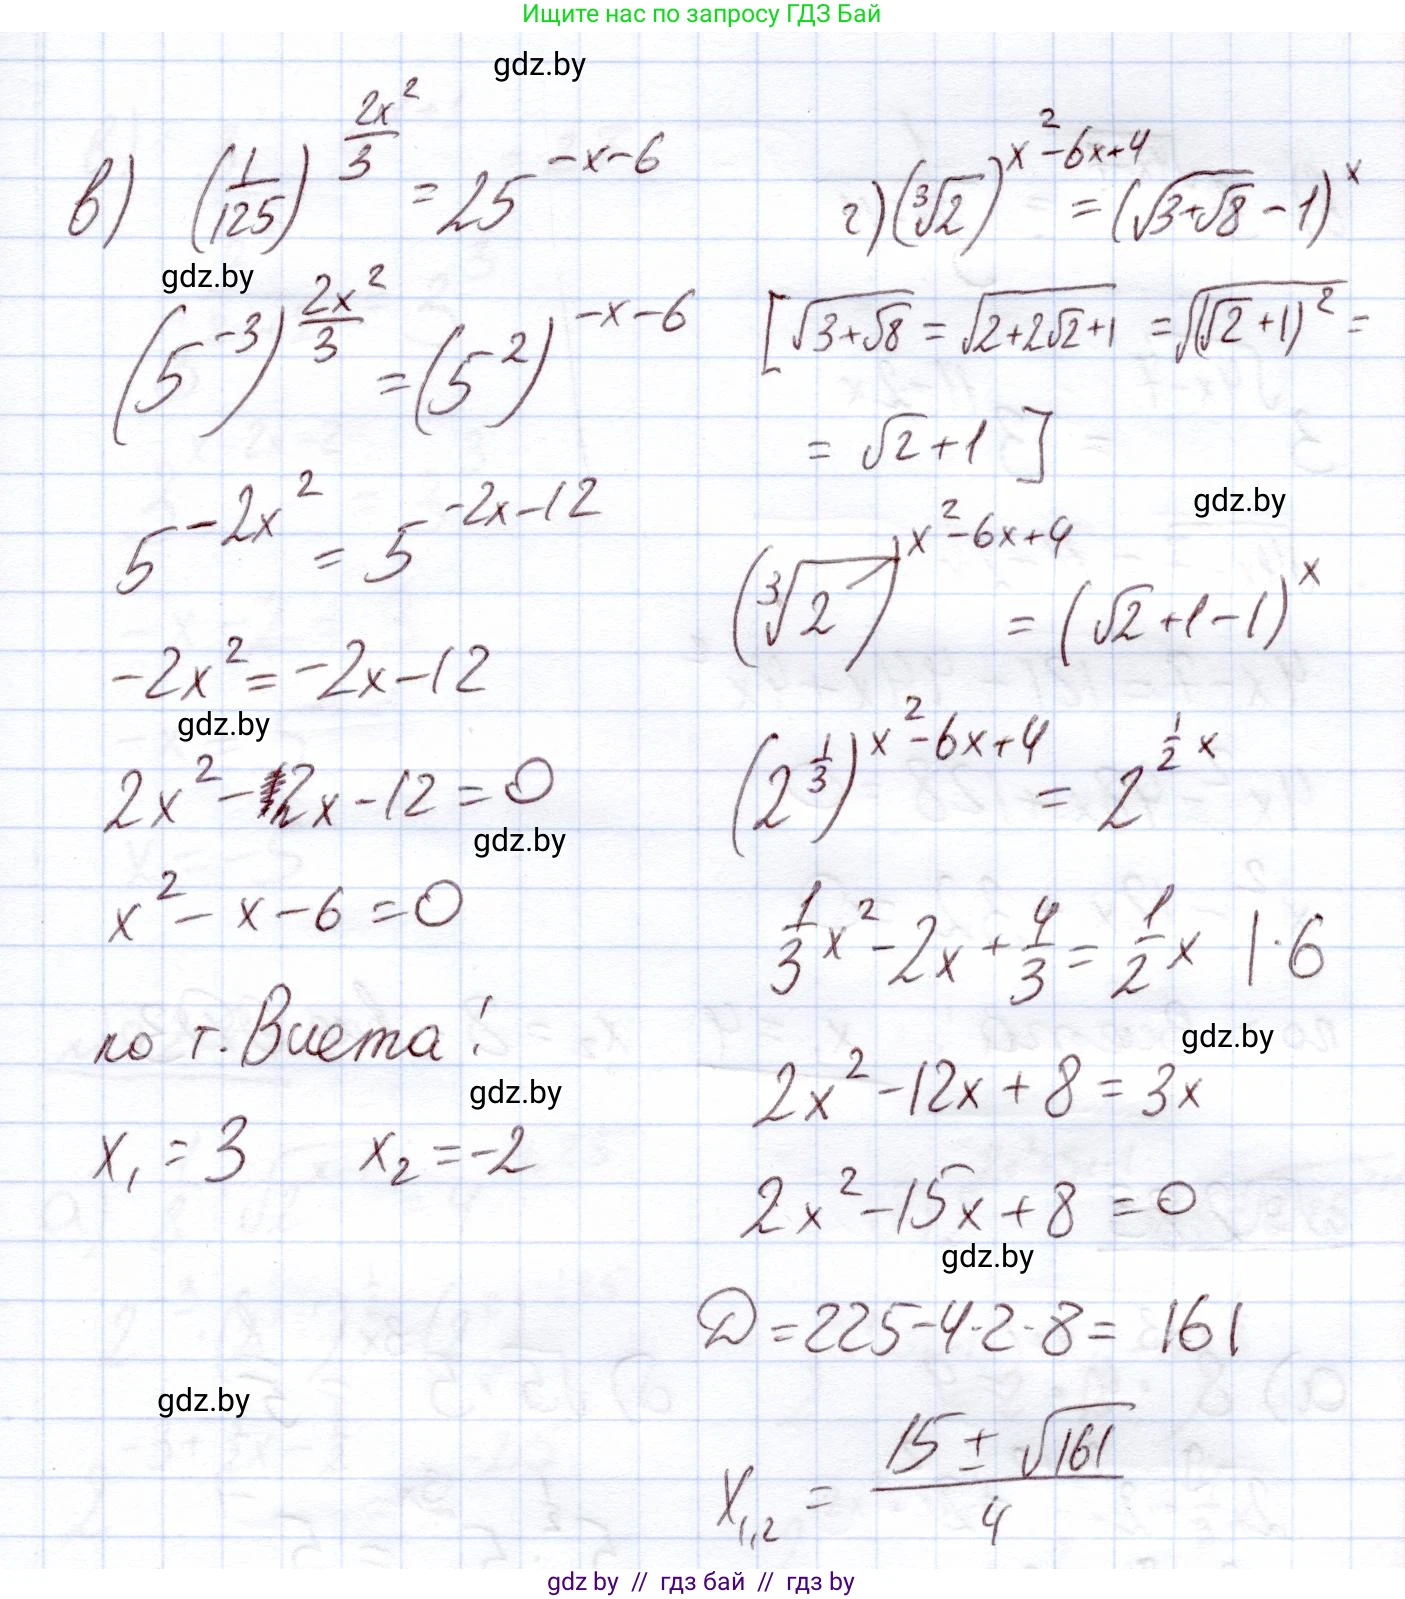 Ищите нас по запросу ГДЗ Бай
gdz.by
в) (1/125)^(2x²/3) = 25^(-x-6)
gdz.by
(5^(-3))^(2x²/3) = (5²)^(-x-6)
5^(-2x²) = 5^(-2x-12)
-2x² = -2x-12
gdz.by
2x² - 2x - 12 = 0
gdz.by
x² - x - 6 = 0
по т. Виета:
gdz.by
x₁ = 3 x₂ = -2
gdz.by
г) (∛2)^(x²-6x+4) = (√(3+√8) - 1)^x
[√(3+√8) = √(2+2√2+1) = √((√2+1)²) =
= √2+1]
gdz.by
(∛2)^(x²-6x+4) = (√2+1-1)^x
(2^(1/3))^(x²-6x+4) = 2^(1/2 x)
1/3 x² - 2x + 4/3 = 1/2 x |·6
gdz.by
2x² - 12x + 8 = 3x
2x² - 15x + 8 = 0
gdz.by
D = 225-4·2·8 = 161
x₁,₂ = (15 ± √161)/4
gdz by // гдз бай // гдз by